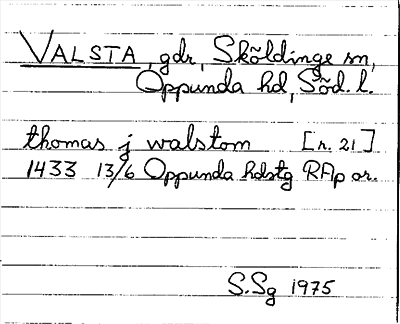 VALSTA, gdr, Sköldinge sn,
Oppunda hd, Söd. l.
thomas j walstom [r. 21]
1433 13/6 Oppunda hdstg RAp or.
S.Sg 1975